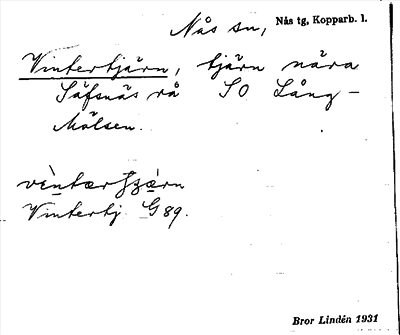 Nås sn, Nås tg, Kopparb. l.
Vintertjärn, tjärn nära
Säfsnäs rå SO Lång-
Målsen.
Vintertj. G 89.
Bror Lindén 1931